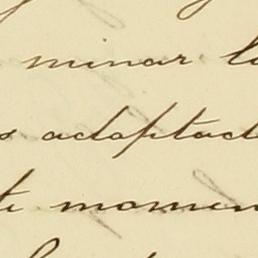 minar l
s adaptad
te momen